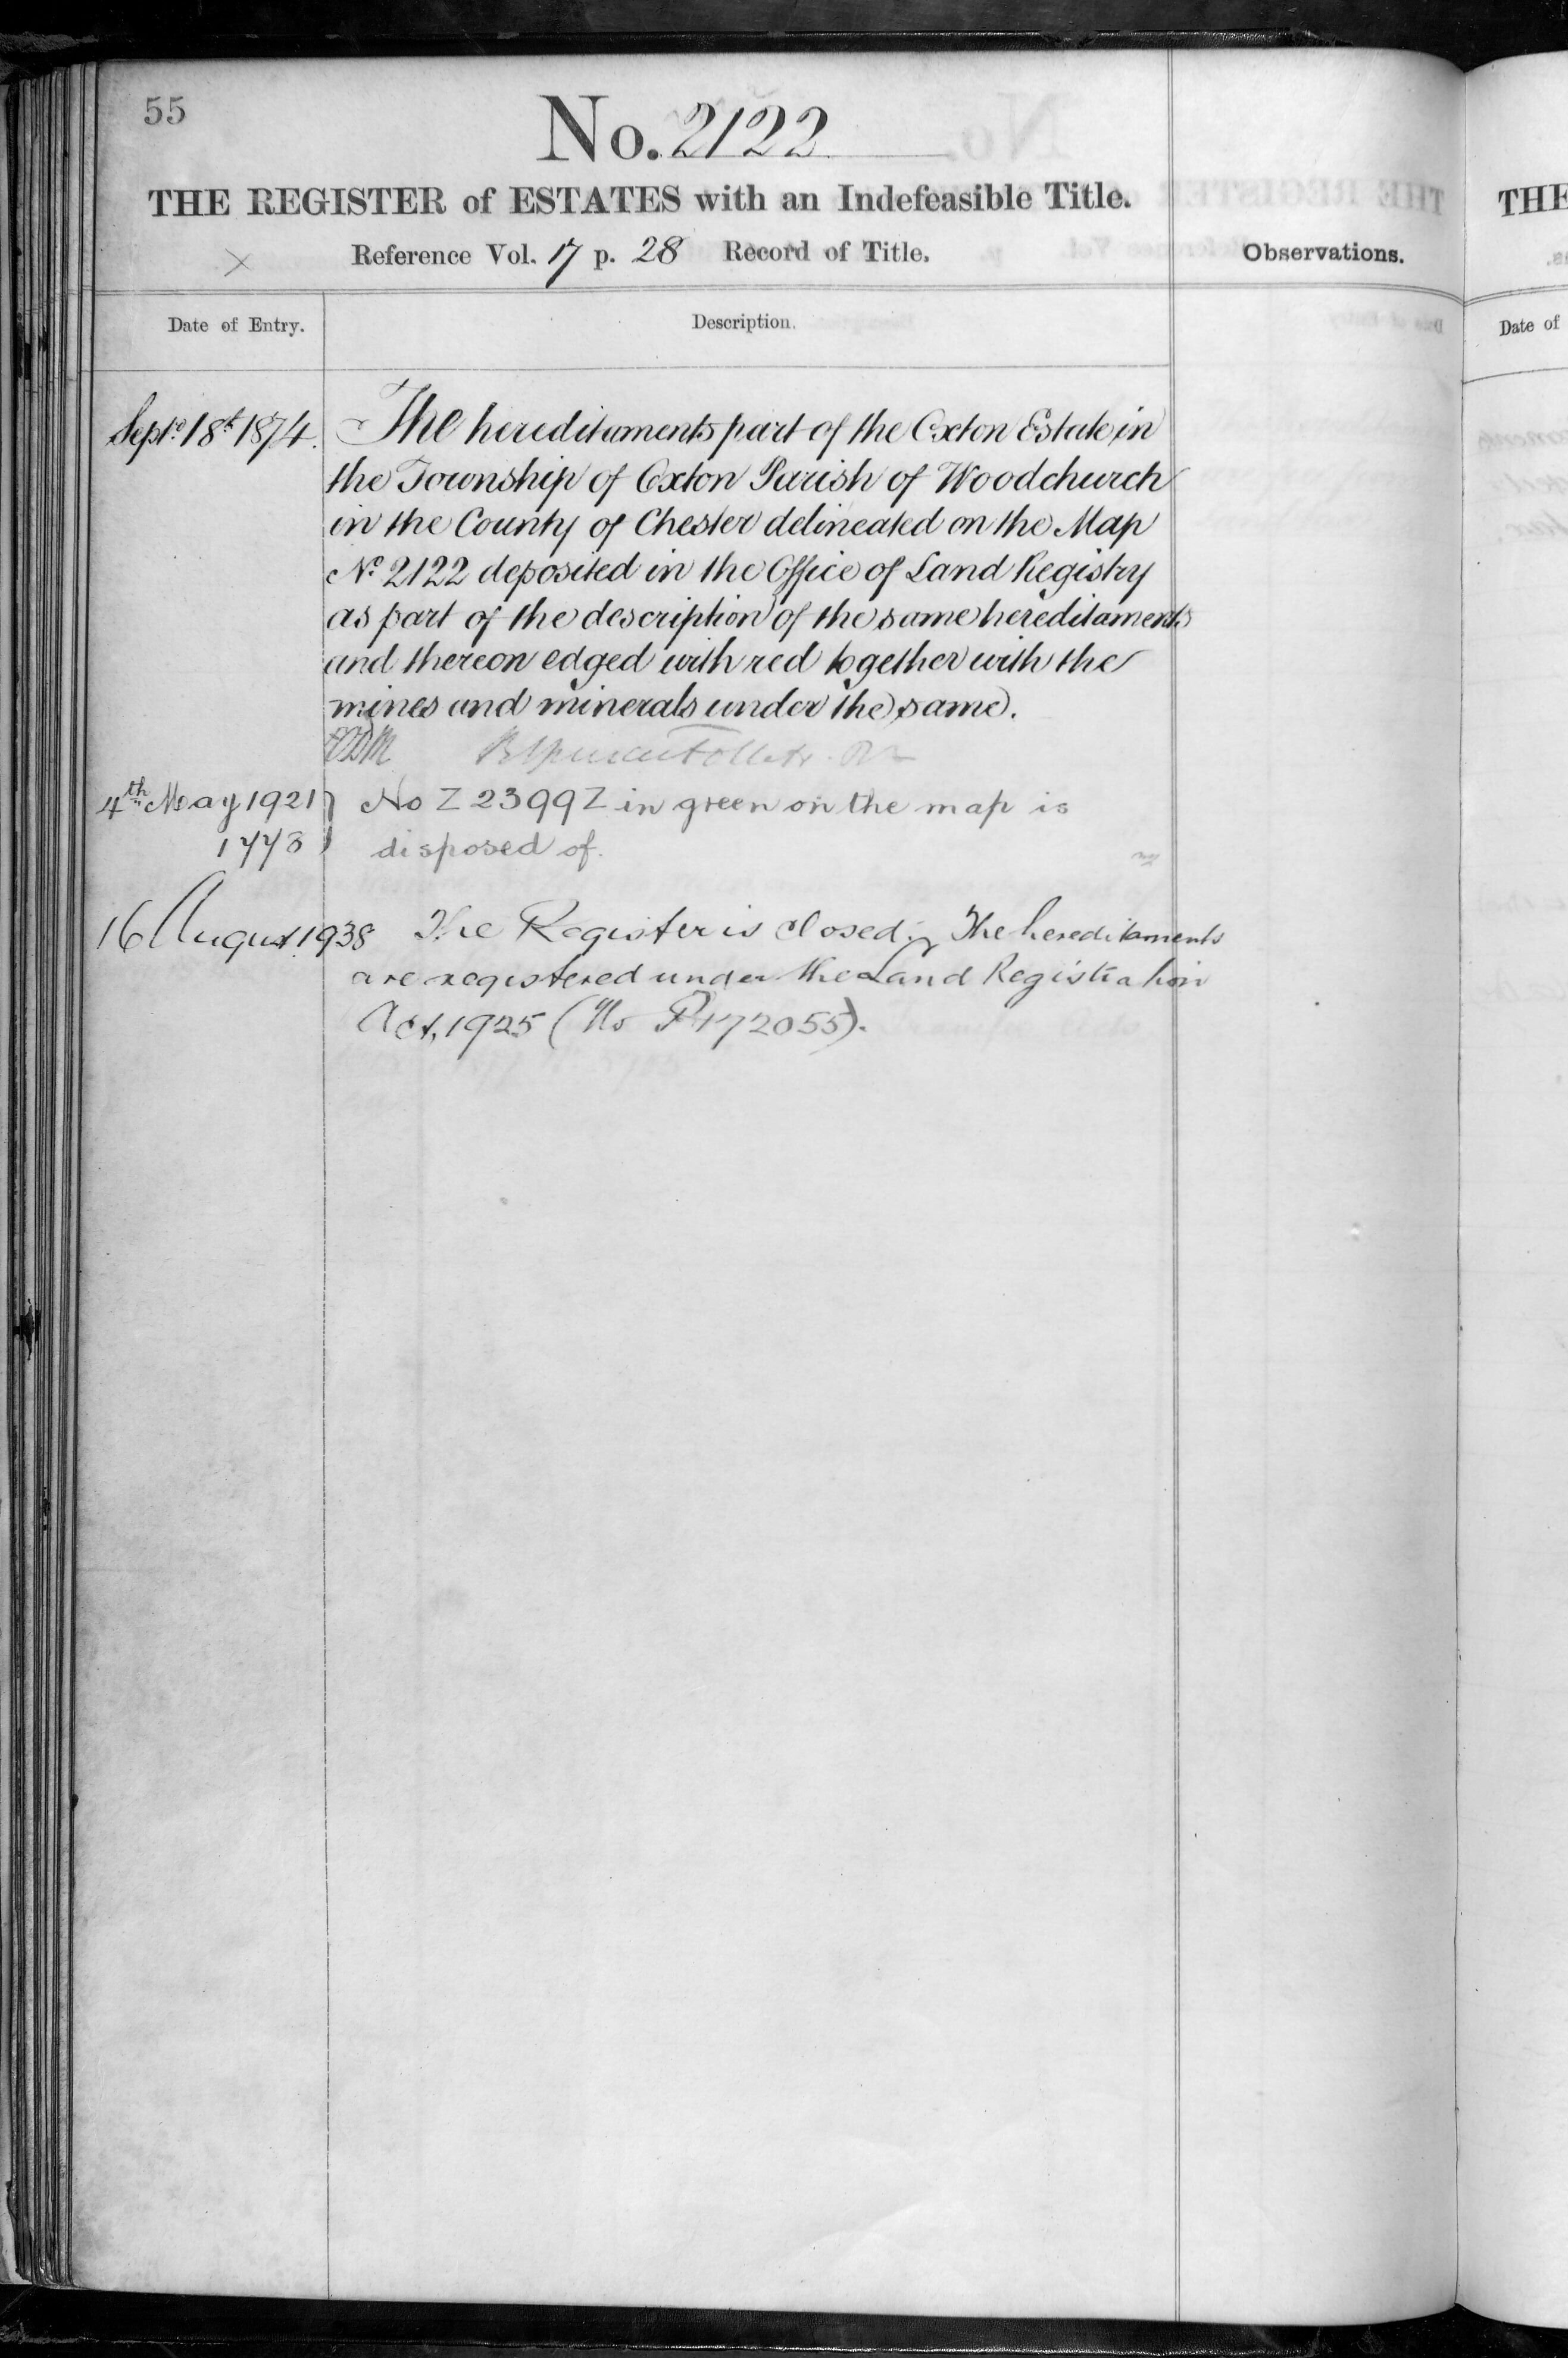 55
No. 2122
THE REGISTER of ESTATES with an Indefeasible Title.
Reference Vol. 17 p. 28 Record of Title.
Observations.
Date of Entry.
Description.
Sept. 18th 1874.
The hereditaments part of the Oxton Estate in
the Township of Oxton Parish of Woodchurch
in the County of Chester delineated on the Map
No 2122 deposited in the Office of Land Registry
as part of the description of the same hereditaments
and thereon edged with red together with the
mines and minerals under the same.
4th May 1921
1778
No Z 2399Z in green on the map is
disposed of.
16 August 1938
The Register is closed. The hereditaments
are registered under the Land Registration
Act, 1925 (No P172055).
THE
Date of